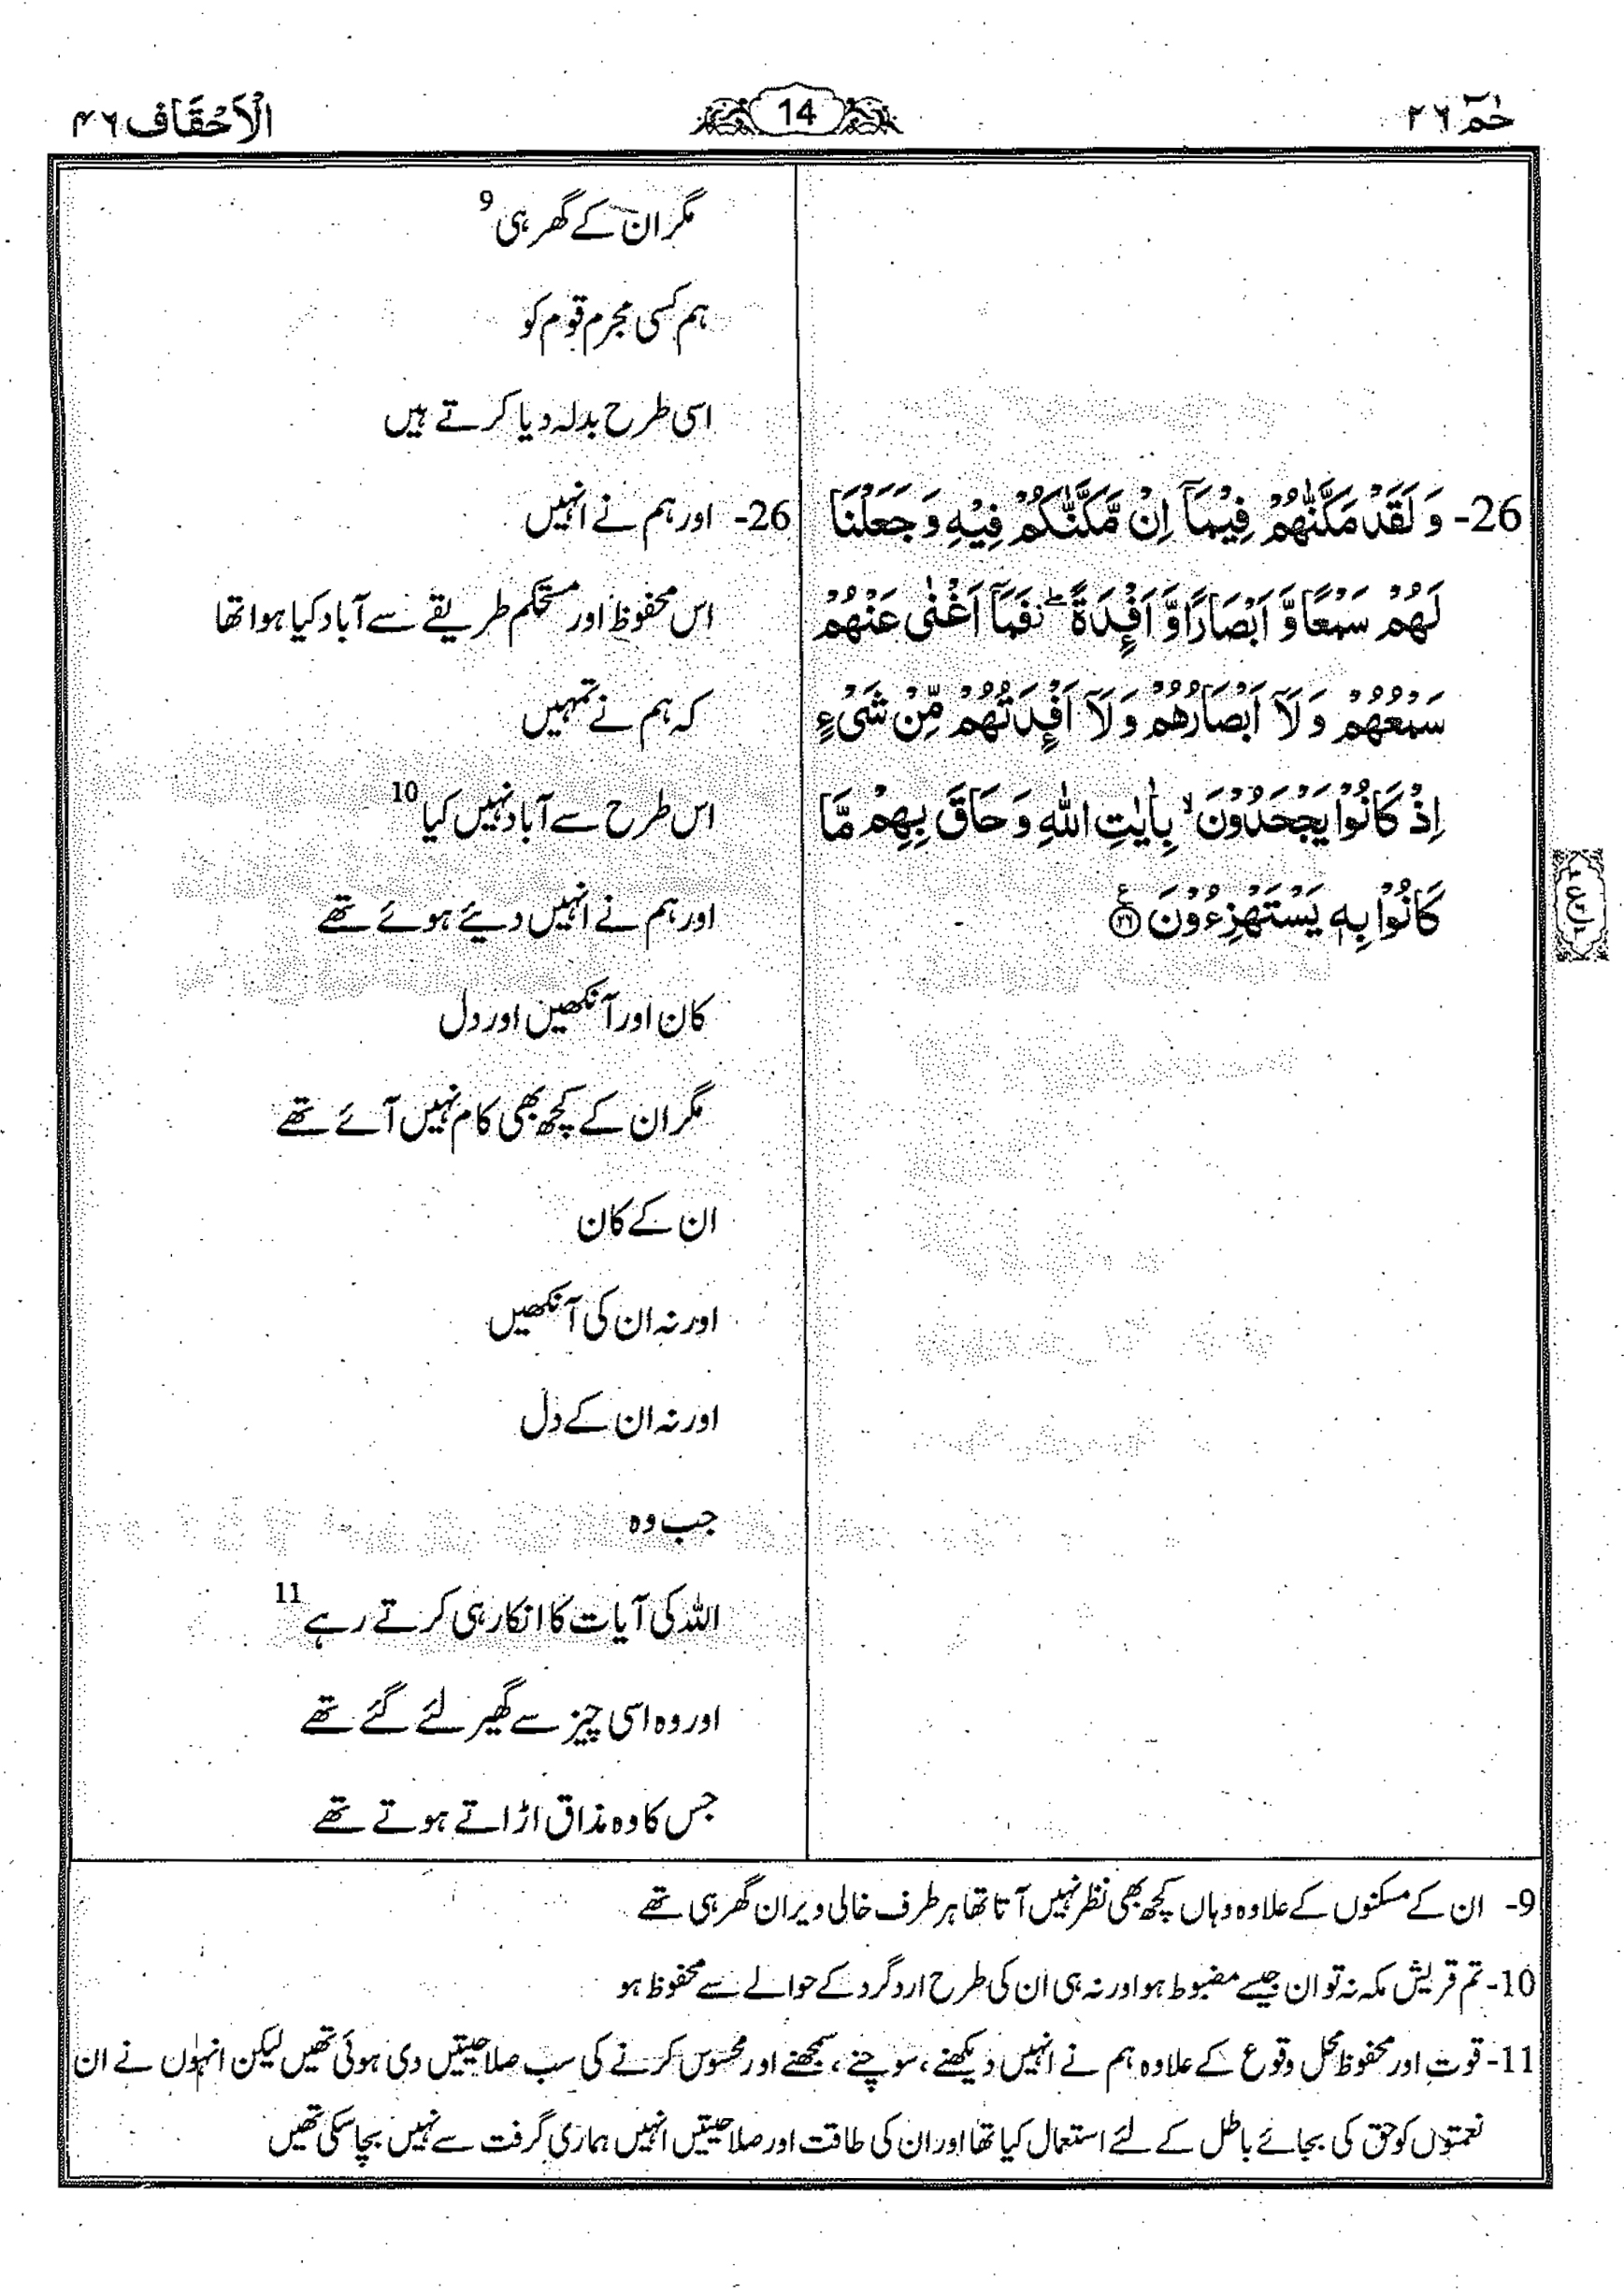 حٰمٓ ٢٦
14
الْاَحْقَاف ٤٦
مگر ان کے گھر ہی 9
ہم کسی مجرم قوم کو
اسی طرح بدلہ دیا کرتے ہیں
26- وَ لَقَدْ مَكَّنّٰهُمْ فِيْمَاۤ اِنْ مَّكَّنّٰكُمْ فِيْهِ وَ جَعَلْنَا
لَهُمْ سَمْعًا وَّ اَبْصَارًا وَّ اَفْـِٕدَةً ۖ٘ فَمَاۤ اَغْنٰى عَنْهُمْ
سَمْعُهُمْ وَ لَاۤ اَبْصَارُهُمْ وَ لَاۤ اَفْـِٕدَتُهُمْ مِّنْ شَیْءٍ
اِذْ كَانُوْا يَجْحَدُوْنَ ۙ بِاٰيٰتِ اللّٰهِ وَ حَاقَ بِهِمْ مَّا
كَانُوْا بِهٖ يَسْتَهْزِءُوْنَ ﴿٢٦﴾ ع
26- اور ہم نے انہیں
اس محفوظ اور مستحکم طریقے سے آباد کیا ہوا تھا
کہ ہم نے تمہیں
اس طرح سے آباد نہیں کیا 10
اور ہم نے انہیں دیئے ہوئے تھے
کان اور آنکھیں اور دل
مگر ان کے کچھ بھی کام نہیں آئے تھے
ان کے کان
اور نہ ان کی آنکھیں
اور نہ ان کے دل
جب وہ
اللہ کی آیات کا انکار ہی کرتے رہے 11
اور وہ اسی چیز سے گھیر لئے گئے تھے
جس کا وہ مذاق اڑاتے ہوتے تھے
9- ان کے مسکنوں کے علاوہ وہاں کچھ بھی نظر نہیں آتا تھا ہر طرف خالی ویران گھر ہی تھے
10- تم قریش مکہ نہ تو ان جیسے مضبوط ہو اور نہ ہی ان کی طرح اردگرد کے حوالے سے محفوظ ہو
11- قوت اور محفوظ محل وقوع کے علاوہ ہم نے انہیں دیکھنے، سوچنے، سمجھنے اور محسوس کرنے کی سب صلاحیتیں دی ہوئی تھیں لیکن انہوں نے ان
نعمتوں کو حق کی بجائے باطل کے لئے استعمال کیا تھا اور ان کی طاقت اور صلاحیتیں انہیں ہماری گرفت سے نہیں بچا سکی تھیں